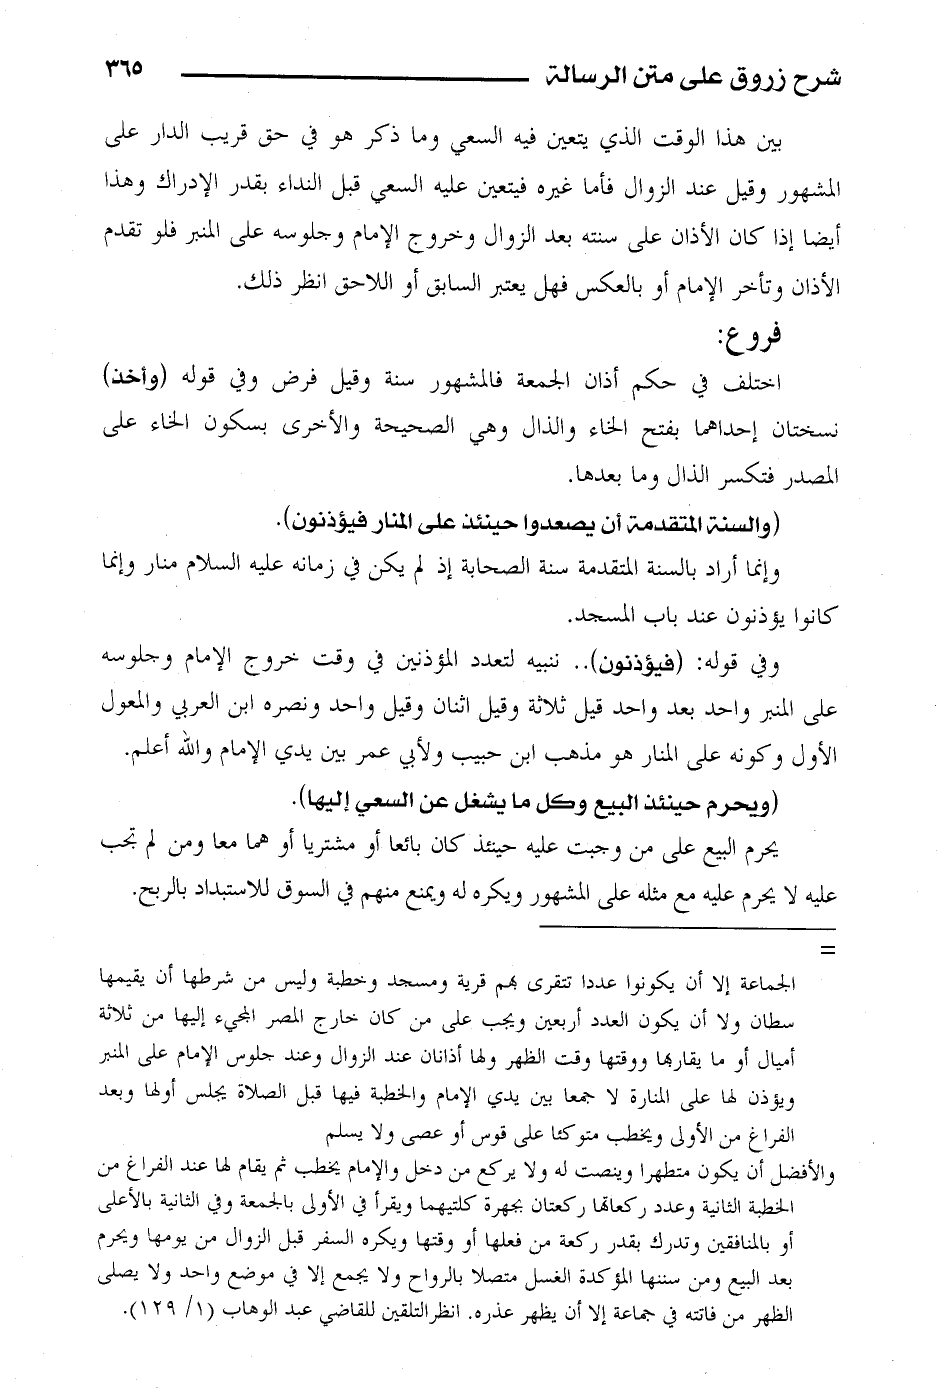 شرح زروق على متن الرسالة ٣٦٥
بين هذا الوقت الذي يتعين فيه السعي وما ذكر هو في حق قريب الدار على
المشهور وقيل عند الزوال فأما غيره فيتعين عليه السعي قبل النداء بقدر الإدراك وهذا
أيضا إذا كان الأذان على سنته بعد الزوال وخروج الإمام وجلوسه على المنبر فلو تقدم
الأذان وتأخر الإمام أو بالعكس فهل يعتبر السابق أو اللاحق انظر ذلك.
فروع:
اختلف في حكم أذان الجمعة فالمشهور سنة وقيل فرض وفي قوله (وأخذ)
نسختان إحداهما بفتح الخاء والذال وهي الصحيحة والأخرى بسكون الخاء على
المصدر فتكسر الذال وما بعدها.
(والسنة المتقدمة أن يصعدوا حينئذ على المنار فيؤذنون).
وإنما أراد بالسنة المتقدمة سنة الصحابة إذ لم يكن في زمانه عليه السلام منار وإنما
كانوا يؤذنون عند باب المسجد.
وفي قوله: (فيؤذنون).. ننبيه لتعدد المؤذنين في وقت خروج الإمام وجلوسه
على المنبر واحد بعد واحد قيل ثلاثة وقيل اثنان وقيل واحد ونصره ابن العربي والمعول
الأول وكونه على المنار هو مذهب ابن حبيب ولأبي عمر بين يدي الإمام والله أعلم.
(ويحرم حينئذ البيع وكل ما يشغل عن السعي إليها).
يحرم البيع على من وجبت عليه حينئذ كان بائعا أو مشتريا أو هما معا ومن لم تجب
عليه لا يحرم عليه مع مثله على المشهور ويكره له ويمنع منهم في السوق للاستبداد بالربح.
=
الجماعة إلا أن يكونوا عددا تتقرى بهم قرية ومسجد وخطبة وليس من شرطها أن يقيمها
سطان ولا أن يكون العدد أربعين ويجب على من كان خارج المصر المجيء إليها من ثلاثة
أميال أو ما يقاربها ووقتها وقت الظهر ولها أذانان عند الزوال وعند جلوس الإمام على المنبر
ويؤذن لها على المنارة لا جمعا بين يدي الإمام والخطبة فيها قبل الصلاة يجلس أولها وبعد
الفراغ من الأولى ويخطب متوكئا على قوس أو عصى ولا يسلم
والأفضل أن يكون متطهرا وينصت له ولا يركع من دخل والإمام يخطب ثم يقام لها عند الفراغ من
الخطبة الثانية وعدد ركعاتها ركعتان بجهرة كلتيهما ويقرأ في الأولى بالجمعة وفي الثانية بالأعلى
أو بالمنافقين وتدرك بقدر ركعة من فعلها أو وقتها ويكره السفر قبل الزوال من يومها ويحرم
بعد البيع ومن سننها المؤكدة الغسل متصلا بالرواح ولا يجمع إلا في موضع واحد ولا يصلى
الظهر من فاتته في جماعة إلا أن يظهر عذره. انظرالتلقين للقاضي عبد الوهاب (١/ ١٢٩).